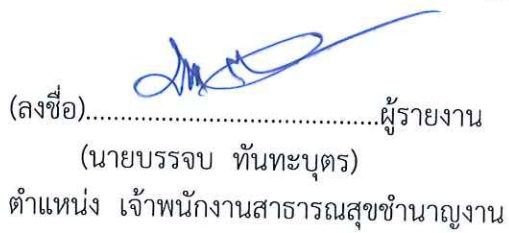 (ลงชื่อ)........................................ผู้รายงาน
(นายบรรจบ ทันทะบุตร)
ตำแหน่ง เจ้าพนักงานสาธารณสุขชำนาญงาน